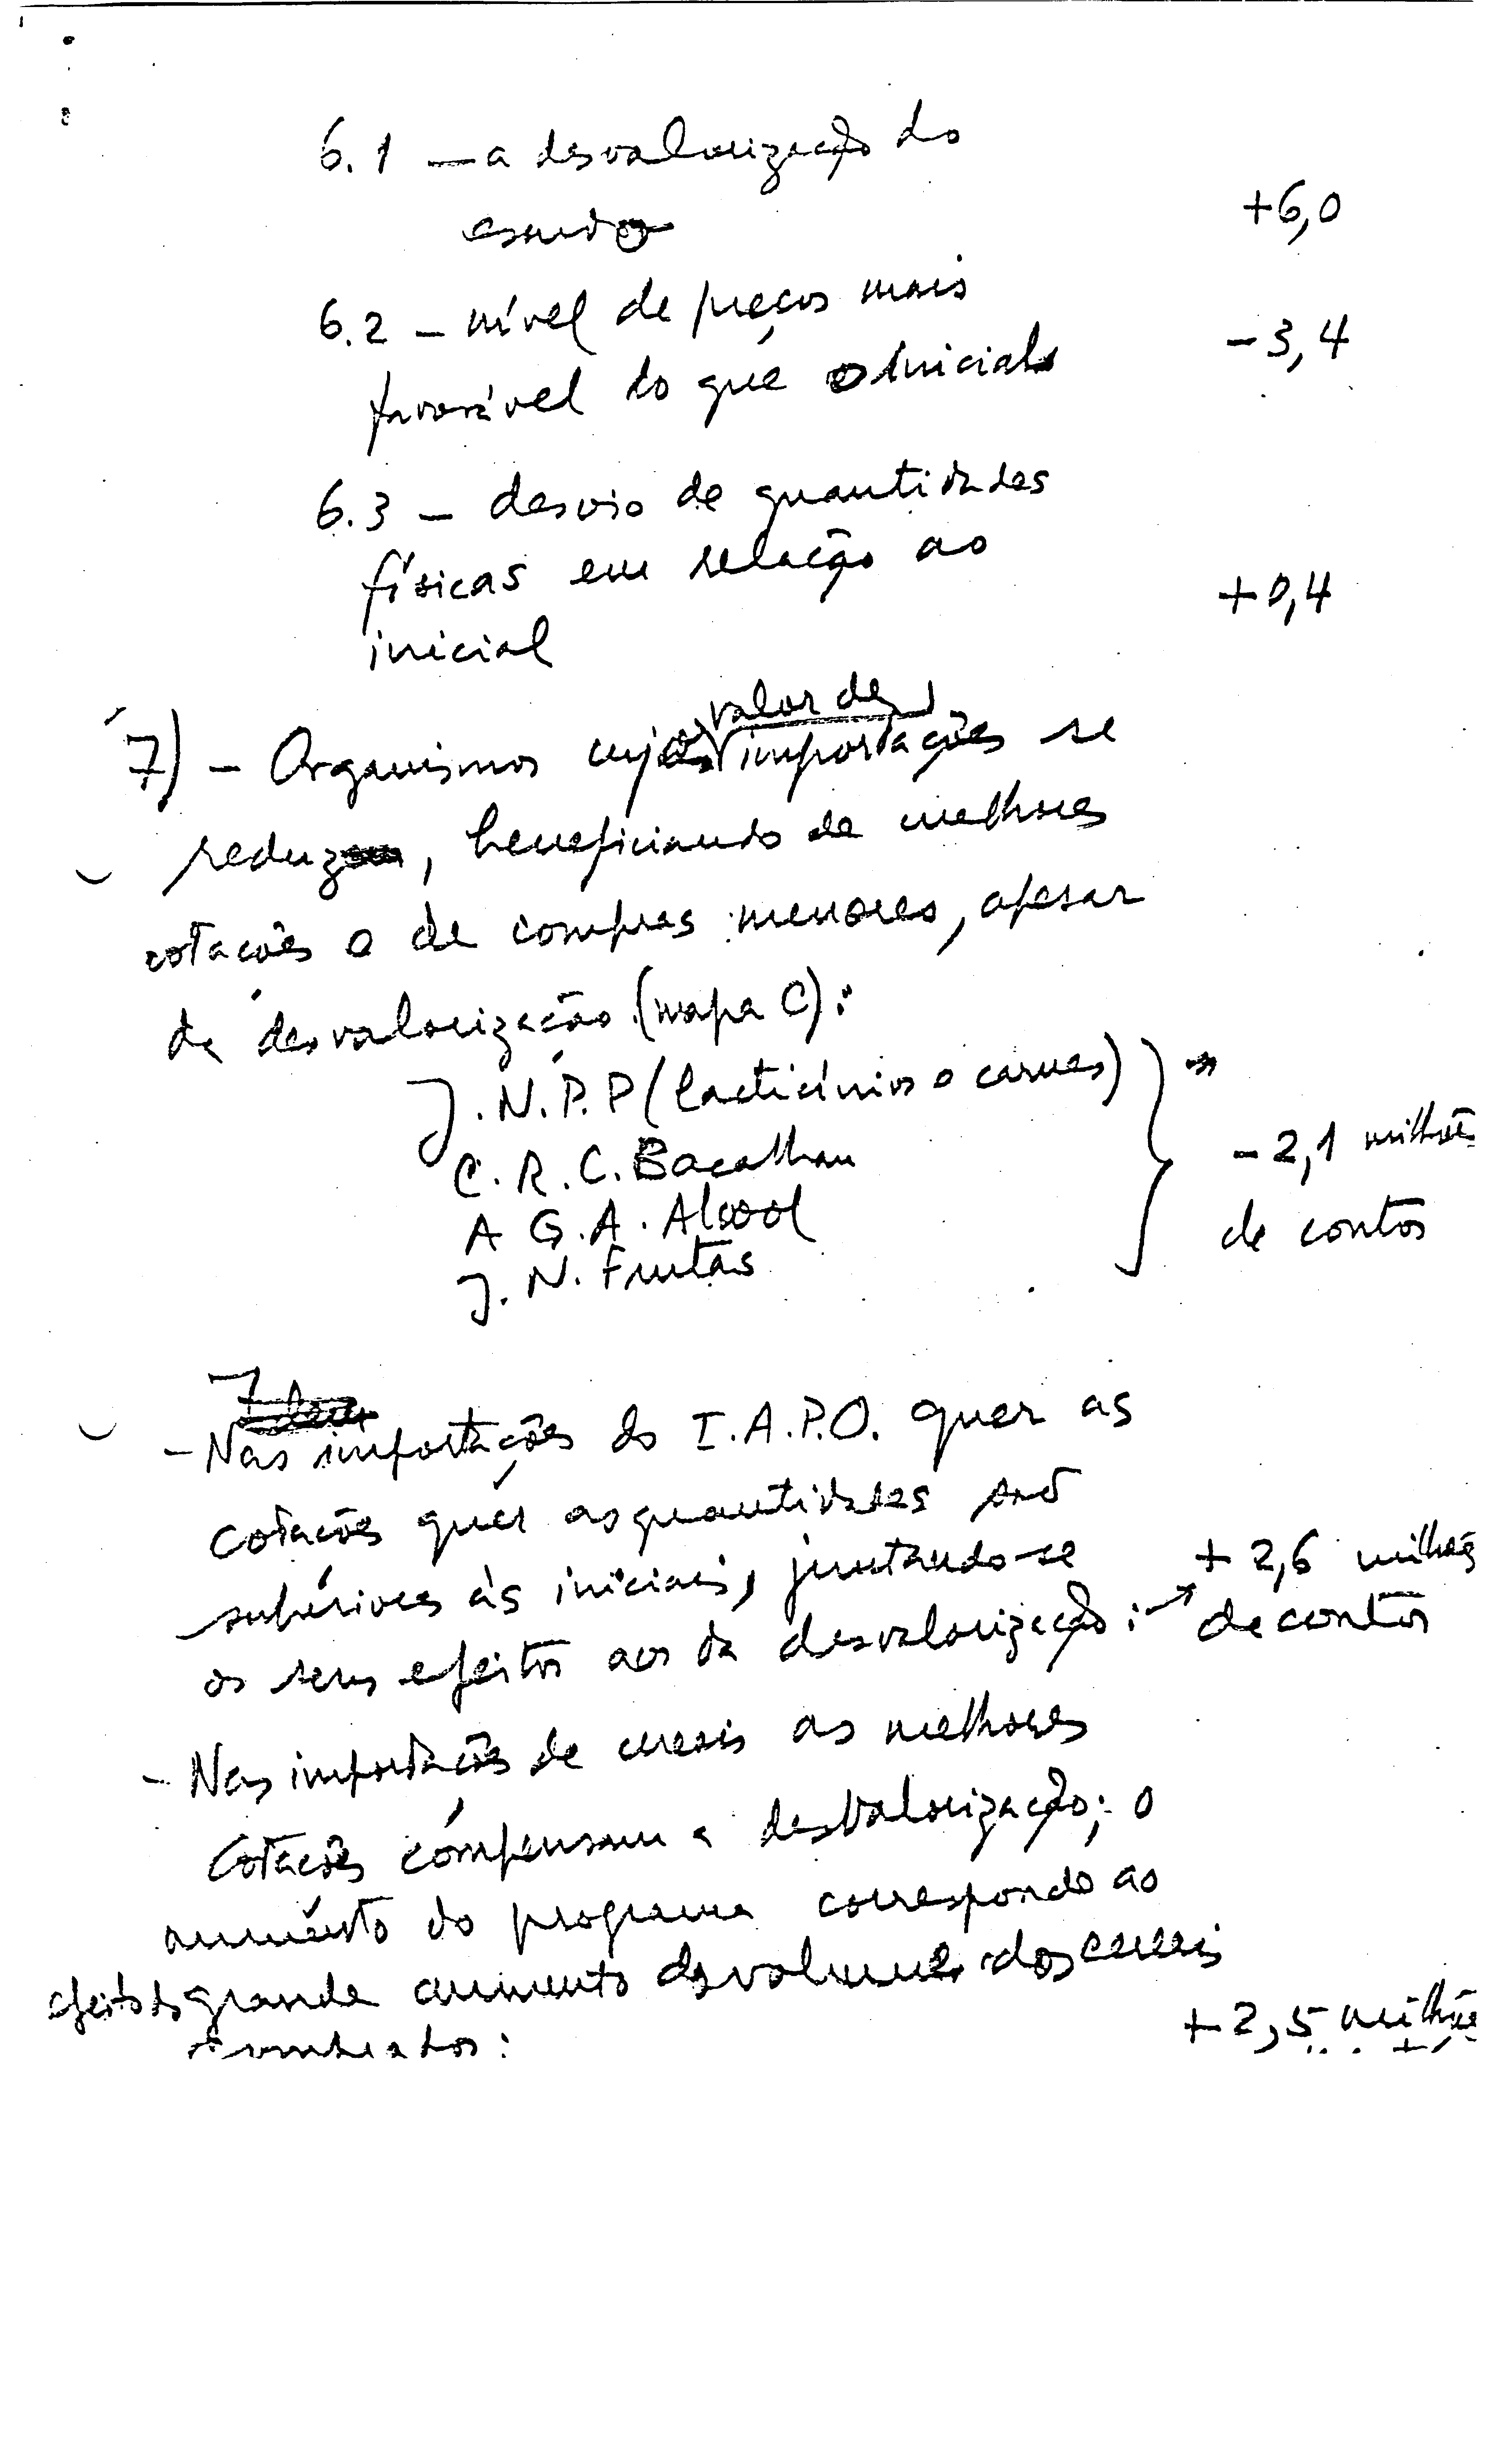 6.1 — a desvalorização do
escudo +6,0
6.2 – nível de preços mais
favorável do que o inicial -3,4
6.3 – desvio de quantidades
físicas em relação ao
inicial +0,4
valor de
7) – Organismos cujo importações se
reduz, beneficiando de melhores
cotações e de compras menores, apesar
da desvalorização (mapa C):
J.N.P.P (lacticínios e carnes) →
C.R.C. Bacalhau - 2,1 milhões
A G.A. Alcool de contos
J. N. Frutas
- Nas importações do I.A.P.O. quer as
cotações quer as quantidades são
superiores às iniciais, juntando-se + 2,6 milhões
os seus efeitos aos da desvalorização: → de contos
- Nas importações de cereais as melhores
cotações compensam a desvalorização; o
aumento do programa corresponde ao
efeito do grande aumento do volume dos cereais
+ 2,5 milhões